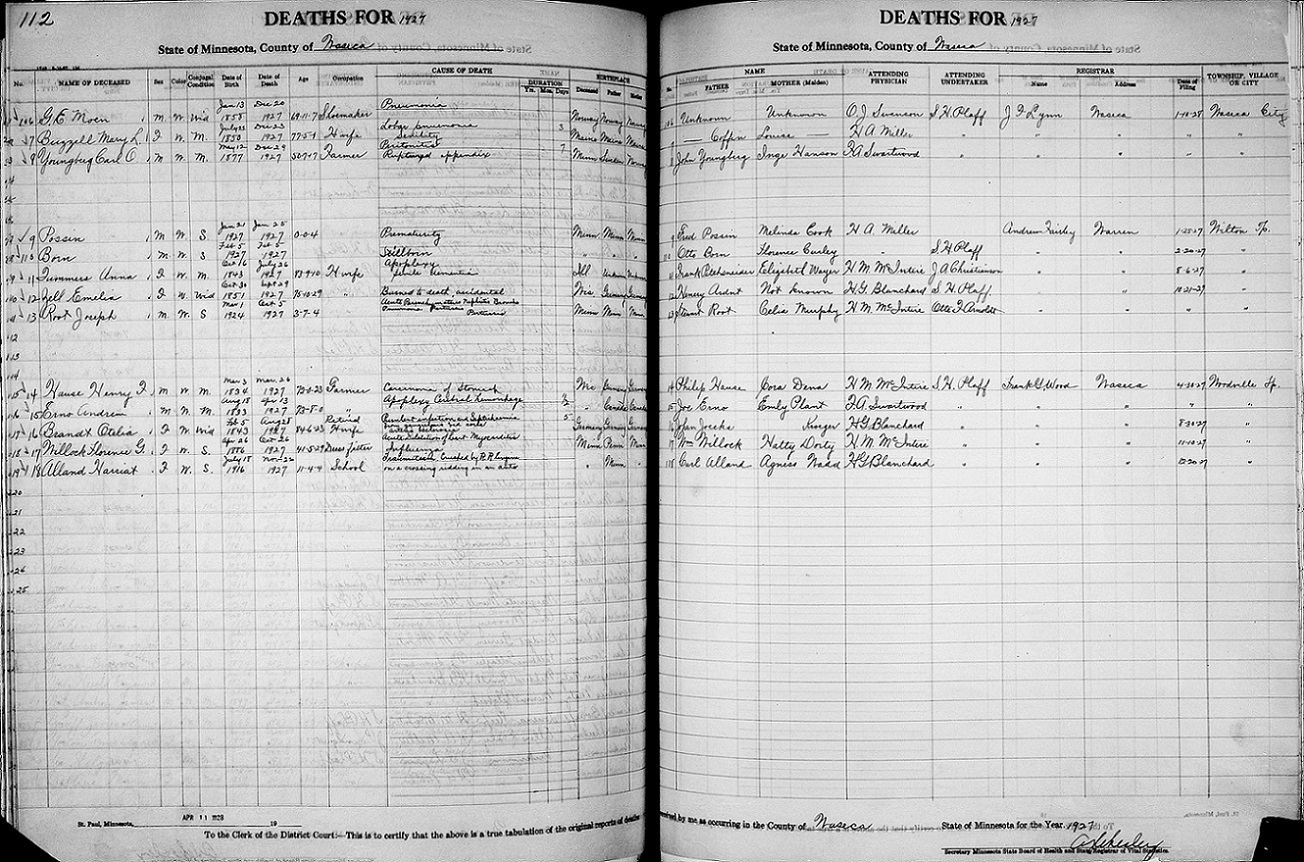 112
DEATHS FOR 1927
State of Minnesota, County of Waseca
No. NAME OF DECEASED Sex Color Conjugal Condition Date of Birth Date of Death Age Occupation CAUSE OF DEATH DURATION Yrs. Mon. Days BIRTHPLACE Deceased Father Mother
6 G. E. Moen m W Wid Jan 13 1858 Dec 20 1927 69-11-7 Shoemaker Pneumonia Norway Norway Norway
7 Buzzell Mary L. F W. M. July 23 1850 Dec 23 1927 77-5-1 H wife Lobar pneumonia Senility 3 Maine Maine Maine
8 Youngberg Carl O. m W. M. May 12 1877 Dec 29 1927 50-7-17 Farmer Peritonitis Ruptured appendix 7 Minn Sweden Norway
9 Possin m W. S. Jan 21 1927 Jan 25 1927 0-0-4 Prematurity Minn Minn Minn
Born m W S Feb 5 1927 Feb 5 1927 Stillborn " " "
11 Timmers Anna F W. M. Oct 16 1843 July 26 1927 83-9-10 H wife Apoplexy Senile Dementia Ill Unknown Unknown
12 Zell Emelia F W. Wid Oct 30 1851 Sept 29 1927 75-10-29 " Burned to death, accidental Wis Germany Germany
13 Root Joseph m W S Mar 1924 Oct 5 1927 3-7-4 Minn Minn Minn
14 Hause Henry F. m W M. Mar 3 1854 Mar. 26 1927 73-0-23 Farmer Carcinoma of Stomach Wis Germany Germany
15 Erno Andrew m W. M. Aug 18 1853 Apr 13 1927 73-7-2 " Apoplexy Cerebral hemorrhage " Canada Canada
16 Brandt Otelia F W Wid Feb 5 1843 Aug 28 1927 84-6-23 Retired H wife 5 Germany Germany Germany
17 Willock Florence G. F W. S. Apr 26 1886 Oct 26 1927 41-5-29 Dress fitter Acute Dilatation of heart Myocarditis Influenza Minn Penn Minn
18 Alland Harriat F W. S. July 18 1916 Nov 22 1927 11-4-4 School Traumatism Crushed by R.R. Engine on a crossing ridding in an auto " Minn
St. Paul, Minnesota, APR 11 1928 19
To the Clerk of the District Court:—This is to certify that the above is a true tabulation of the original reports of deaths
DEATHS FOR 1927
State of Minnesota, County of Waseca
No. NAME FATHER MOTHER (Maiden) ATTENDING PHYSICIAN ATTENDING UNDERTAKER REGISTRAR Name Address Date of Filing TOWNSHIP, VILLAGE OR CITY
Unknown Unknown O. J. Swanson S. H. Plaff J F Lynn Waseca 1-10-28 Waseca City
— Coffin Louise — H A Miller " " " " "
John Youngberg Inge Hanson F. A. Swartwood " " " "
9 Fred Possin Melinda Cook H A. Miller Andrew Fairley Warren 1-25-27 Wilton Tp.
Otto Born Florence Curley S. H Plaff " " 2-20-27 "
Elizabeth Wayer H. M. McIntire J A Christianson " " 8-6-27 "
12 Henry Arndt Not known H. G. Blanchard S. H. Plaff " " 10-21-27 "
13 Stewart Root Celia Murphy H. M. McIntire Otto F. Arndt " " "
14 Philip Hause Cora Dena H. M. McIntire S. H. Plaff Frank G. Wood Waseca 4-30-27 Woodville Tp.
15 Joe Erno Emly Plant F. A. Swartwood " " " "
16 John Jaeche Kruger H G Blanchard " " " 8-30-27 "
17 Wm Willock Hatty Doty H. M. McIntire " " " 11-10-27 "
18 Carl Alland Agness Wadd H G Blanchard " " " 12-20-27 "
received by me as occurring in the County of Waseca State of Minnesota for the Year 1927
Secretary Minnesota State Board of Health and State Registrar of Vital Statistics.